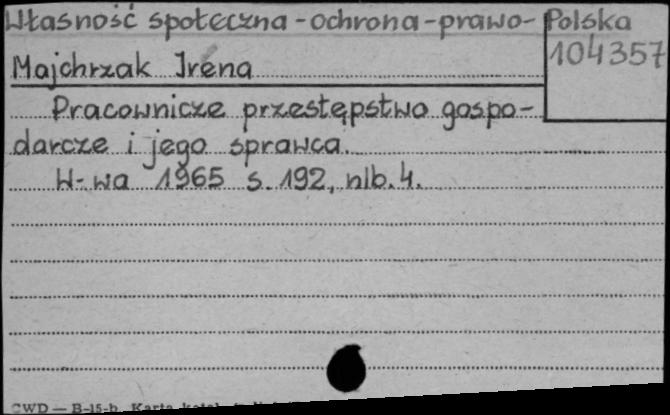 Własność społeczna - ochrona - prawo - Polska
104357
Majchrzak Irena
Pracownicze przestępstwo gospo-
darcze i jego sprawca.
W-wa 1965 s. 192, nlb. 4.
CWD — B-15-b. Karta